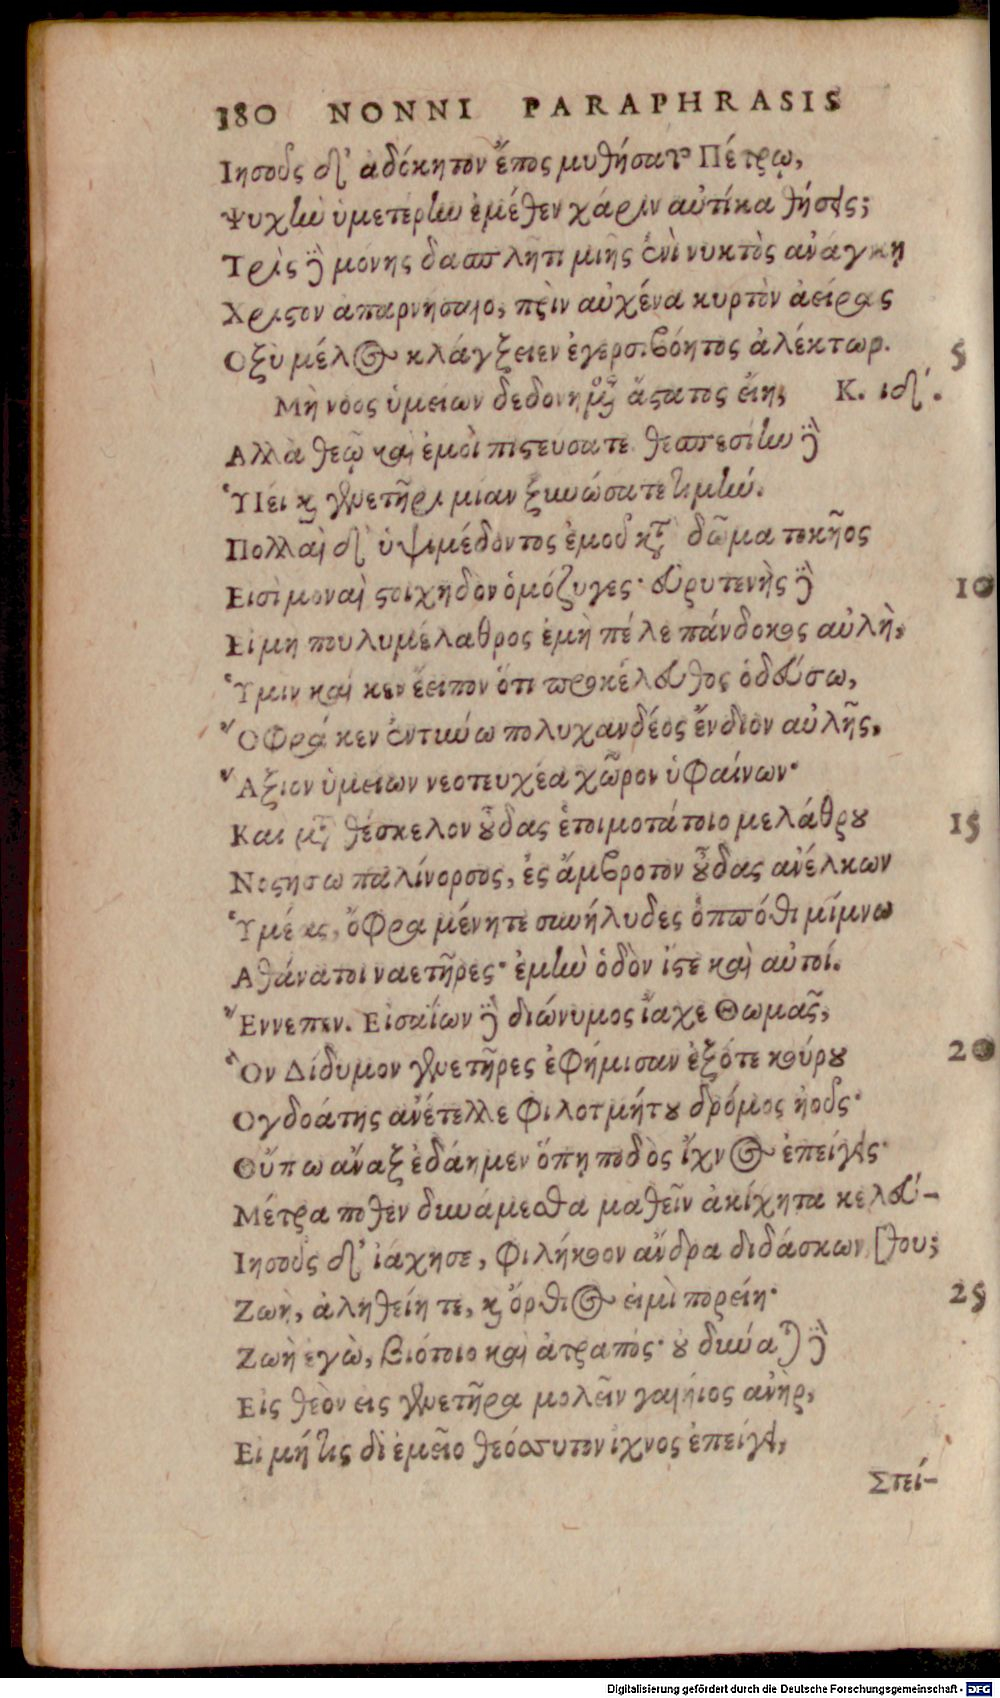 180 NONNI PARAPHRASIS
Ιησοῦς δ' ἀδόκητον ἔπος μυθήσατο Πέτρῳ,
Ψυχὴν ὑμετέρην ἐμέθεν χάριν αὐτίκα θήσεις;
Τρὶς γὰρ μόνης δασπλῆτι μιῆς ἐνὶ νυκτὸς ἀνάγκῃ
Χριστὸν ἀπαρνήσαιο, πρὶν αὐχένα κυρτὸν ἀείρας
Οξὺ μέλος κλάγξειεν ἐγερσιβόητος ἀλέκτωρ. 5
Μὴ νόος ὑμείων δεδονημένος ἄστατος εἴη, Κ. ιδ'.
Αλλὰ θεῷ καὶ ἐμοὶ πιστεύσατε θεσπεσίην γὰρ
Ὑιέι καὶ γενετῆρι μίαν ξυνώσατε τιμήν.
Πολλαὶ δ' ὑψιμέδοντος ἐμοῦ κατὰ δῶμα τοκῆος
Εισὶ μοναὶ στοιχηδὸν ὁμόζυγες· εὐρυτενὴς γὰρ 10
Ει μὴ πουλυμέλαθρος ἐμὴ πέλε πάνδοκος αὐλὴ,
Ὑμιν καί κεν ἔειπον ὅτι προκέλευθος ὁδεύσω,
Ὄφρά κεν ἐντύνω πολυχανδέος ἔνδιον αὐλῆς,
Ἄξιον ὑμείων νεοτευχέα χῶρον ὑφαίνων·
Και μετὰ θέσκελον οὖδας ἑτοιμοτάτοιο μελάθρου 15
Νοστήσω παλίνορσος, ἐς ἄμβροτον οὖδας ἀνέλκων
Ὑμέας, ὄφρα μένητε συνήλυδες ὁππόθι μίμνω
Αθάνατοι ναετῆρες· ἐμὴν ὁδὸν ἴστε καὶ αὐτοί.
Ἔννεπεν. Εἰσαΐων γὰρ διώνυμος ἴαχε Θωμᾶς,
Ὃν Δίδυμον γενετῆρες ἐφήμισαν ἐξότε κούρου 20
Ογδοάτης ἀνέτελλε φιλοτμήτου δρόμος ἠοῦς·
Οὔπω ἄναξ ἐδάημεν ὅπη ποδὸς ἴχνος ἐπείγεις·
Μέτρα πόθεν δυνάμεσθα μαθεῖν ἀκίχητα κελεύ-
Ιησοῦς δ' ἰάχησε, φιλήκοον ἄνδρα διδάσκων, [θου;
Ζωὴ, ἀληθείη τε, καὶ ὄρθιος εἰμὶ πορείη· 25
Ζωὴ ἐγὼ, βιότοιο καὶ ἀτραπός· οὐ δύναται γὰρ
Εἰς θεὸν εἰς γενετῆρα μολεῖν γαιήιος ἀνὴρ,
Ει μή τις δι' ἐμεῖο θεόσσυτον ἴχνος ἐπείγει,
Στεί-
Digitalisierung gefördert durch die Deutsche Forschungsgemeinschaft - DFG